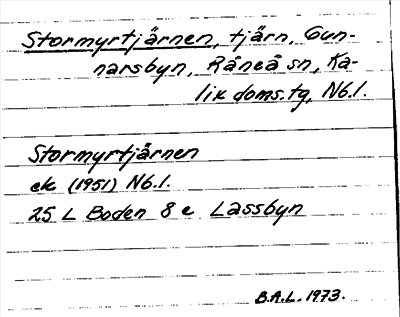 Stormyrtjärnen, tjärn, Gun-
narsbyn, Råneå sn, Ka-
lix doms.tg, Nb.l.
Stormyrtjärnen
ek (1951) Nb.l.
25 L Boden 8 e Lassbyn
B.A.L. 1973.